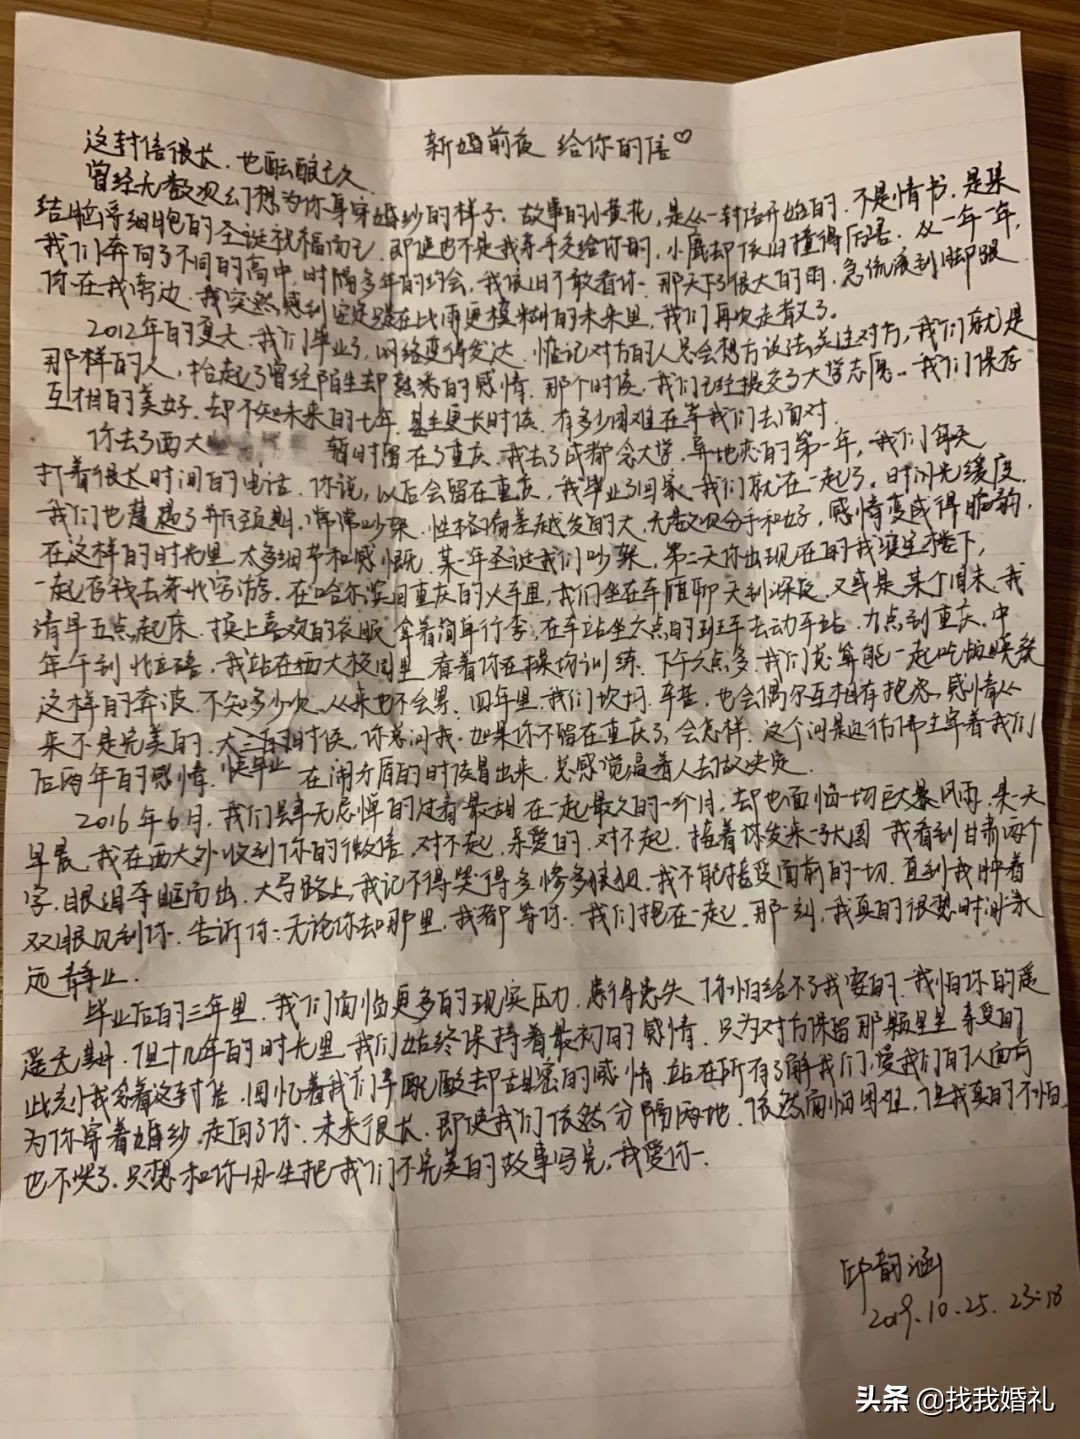 新婚前夜 给你的信♡
这封信很长.也酝酿已久
曾经无数次幻想为你身穿婚纱的样子.故事的小黄花,是从一封信开始的.不是情书.是某
结脑等细胞的圣诞祝福而已.即使也不是我亲手交给你的,小鹿却依旧撞得厉害.从一年一年,
我们奔向了不同的高中.时隔多年的约会,我依旧不敢看你.那天下了很大的雨.急流滚到脚跟
你在我旁边.我突然感到安定.在比雨更模糊的未来里,我们再次走散了。
2012年的夏天.我们毕业了,网络变得发达.惦记对方的人总会想方设法关注对方,我们就是
那样的人,拾起了曾经陌生却熟悉的感情.那个时候.我们已经提交了大学志愿..我们保存
互相的美好.却不知未来的七年.甚至更长时候.有多少困难在等我们去面对.
你去了西大 暂时留在了重庆.我去了成都念大学.异地恋的第一年,我们每天
打着很长时间的电话.你说,以后会留在重庆,我毕业了回家.我们就在一起了。时间先缓度.
我们也蔓延了瓶颈期,常常吵架.性格偏差越发的大.无数次分手和好,感情变成得脆弱.
在这样的时光里.太多细节和感慨.某年圣诞我们吵架,第二天你出现在的我寝室楼下,
一起存钱去穷游.在哈尔滨回重庆的火车里,我们坐在车厢聊天到深夜.又或是某个周末.我
清早五点起床.换上喜欢的衣服.拿着简单行李.在车站坐六点的班车去动车站.九点到重庆.中
午到北碚.我站在西大校园里.看着你在操场训练.下午六点多.我们总算能一起吃饱晚餐
这样的奔波.不知多少次.从来也不会累.四年里.我们坎坷.辛苦.也会偶尔互相有抱怨.感情从
来不是完美的.大三的时候,你总问我.如果你不留在重庆了,会怎样.这个问题仿佛主宰着我们
后两年的感情.快毕业 在闹矛盾的时候冒出来.总感觉逼着人去做决定.
2016年6月.我们肆无忌惮的过着最甜在一起最久的一个月.却也面临一切巨大暴风雨.某一天
早晨.我在西大外收到了你的微信.对不起.亲爱的.对不起.接着你发来一张图.我看到甘肃两个
字.眼泪夺眶而出.大马路上,我记不得哭得多惨多狼狈.我不能接受面前的一切.直到我肿着
双眼见到你.告诉你:无论你去哪里.我都等你.我们抱在一起.那一刻,我真的很想时间永
远静止.
毕业后的三年里.我们面临更多的现实压力.患得患失.你怕给不了我要的.我怕你的遥
遥无期.但十几年的时光里.我们始终保持着最初的感情.只为对方保留那颗星星.亲爱的
此刻我念着这封信.回忆着我们辛酸却甜蜜的感情.站在所有了解我们.爱我们的人面前
为你穿着婚纱.走向了你.未来很长.即使我们依然分隔两地.依然面临困阻.但我真的不怕.
也不哭了.只想和你用一生把我们不完美的故事写完,我爱你.
邱韵涵
2019.10.25.23:18
头条 @找我婚礼